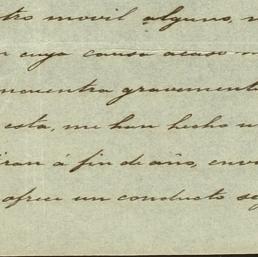 tro movil alguno,
cuya causa acaso
ncuentra gravement
esta, me han hecho
iran á fin de año, env
ofrece un conducto se